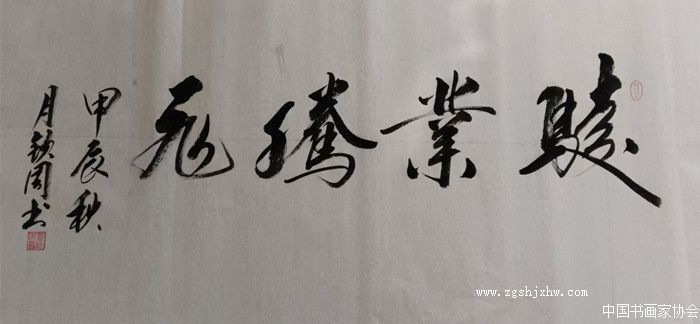 駿業騰飛
甲辰秋
月周书
www.zgshjxhw.com
中国书画家协会